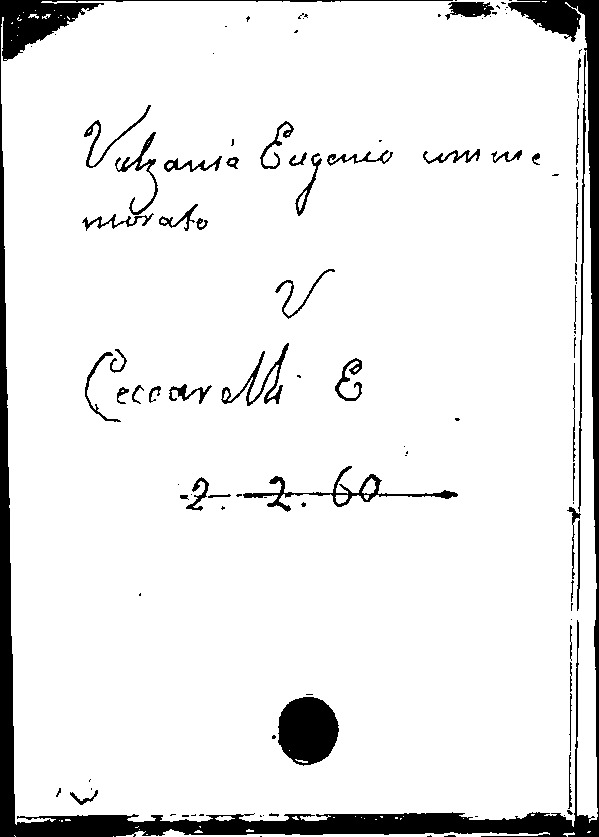 Valzania Eugenio comme-
morato
V
Ceccarelli E
2. 2. 60